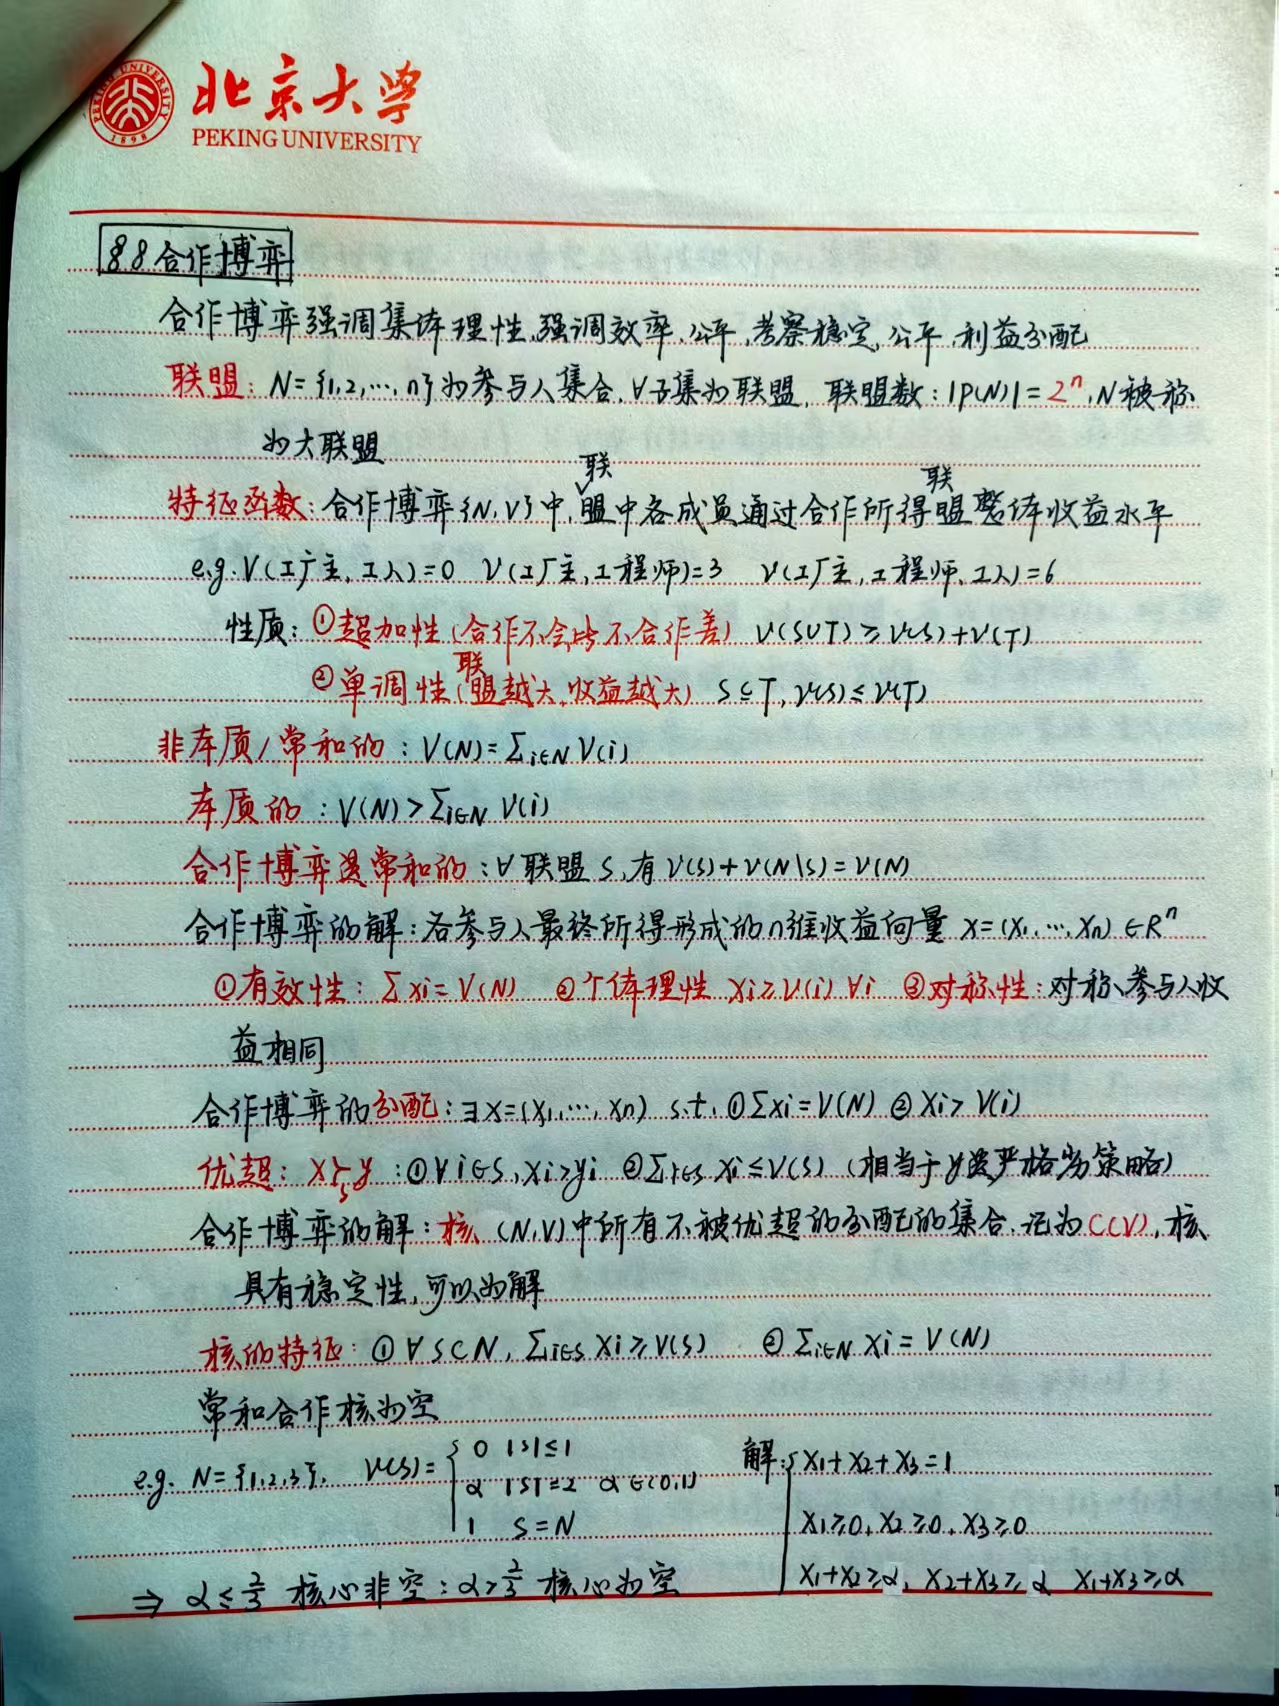 北京大学
PEKING UNIVERSITY
PEKING UNIVERSITY
1898
§8 合作博弈
合作博弈强调集体理性,强调效率、公平,考察稳定、公平、利益分配
联盟: N={1,2,…,n}为参与人集合,∀子集为联盟,联盟数:|P(N)|=2ⁿ,N被称
为大联盟
特征函数:合作博弈{N,V}中,联盟中各成员通过合作所得联盟整体收益水平
e.g. V(工厂主,工人)=0 V(工厂主,工程师)=3 V(工厂主,工程师,工人)=6
性质:①超加性(合作不会比不合作差) V(S∪T)≥V(S)+V(T)
②单调性(联盟越大,收益越大) S⊆T, V(S)≤V(T)
非本质/常和的: V(N)=Σi∈N V(i)
本质的: V(N)>Σi∈N V(i)
合作博弈是常和的:∀联盟S,有V(S)+V(N\S)=V(N)
合作博弈的解:各参与人最终所得形成的n维收益向量 X=(X₁,…,Xn)∈Rⁿ
①有效性: Σxi=V(N) ②个体理性 Xi≥V(i) ∀i ③对称性:对称参与人收
益相同
合作博弈的分配:∃X=(X₁,…,Xn) s.t. ①Σxi=V(N) ②Xi>V(i)
优超: X≻ₛy :①∀i∈S, Xi>yi ②Σi∈S Xi≤V(S) (相当于y是严格劣策略)
合作博弈的解:核 (N,V)中所有不被优超的分配的集合,记为C(V),核
具有稳定性,可以为解
核的特征:①∀S⊂N, Σi∈S Xi≥V(S) ②Σi∈N Xi=V(N)
常和合作核为空
e.g. N={1,2,3}, V(S)={0 |S|≤1
α |S|=2 α∈(0,1)
1 S=N
解:{X₁+X₂+X₃=1
X₁≥0, X₂≥0, X₃≥0
X₁+X₂≥α, X₂+X₃≥α X₁+X₃≥α
⇒ α≤2/3 核心非空;α>2/3 核心为空